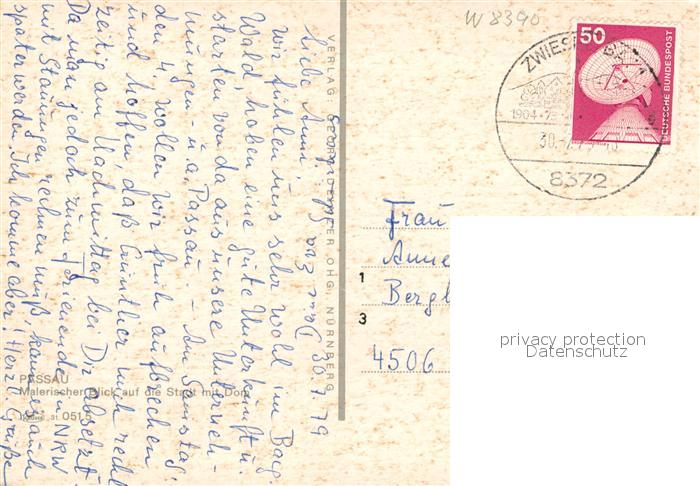 W 8390
50
DEUTSCHE BUNDESPOST
ZWIES
1904-7
30.
8372
VERLAG: GEORG OHG, NÜRNBERG
30.7.79
Liebe Anni!
Wir fühlen uns sehr wohl im Bay.
Wald, haben eine gute Unterkunft u.
starten von da aus unsere Unterneh-
mungen - u. a. Passau. - Am Samstag,
den 4. wollen wir früh aufbrechen
und hoffen, daß Günther mich recht-
zeitig am Nachmittag bei Dir absetzt.
Da man jedoch zum Ferienende in NRW
mit Stauungen rechnen muß, kann es auch
später werden. Ich komme aber! Herzl. Grüße
PASSAU
Malerischer Blick auf die Stadt mit Dom
051 5
Frau
Anne
1
Bergl
3
4506
privacy protection
Datenschutz